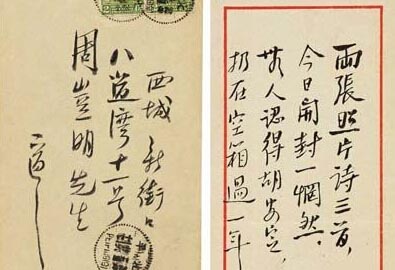 西城新街口
八道灣十一号
周豈明先生
兩張照片詩三首，
今日開封一惘然，
無人認得胡安定，
扔在空箱過一年